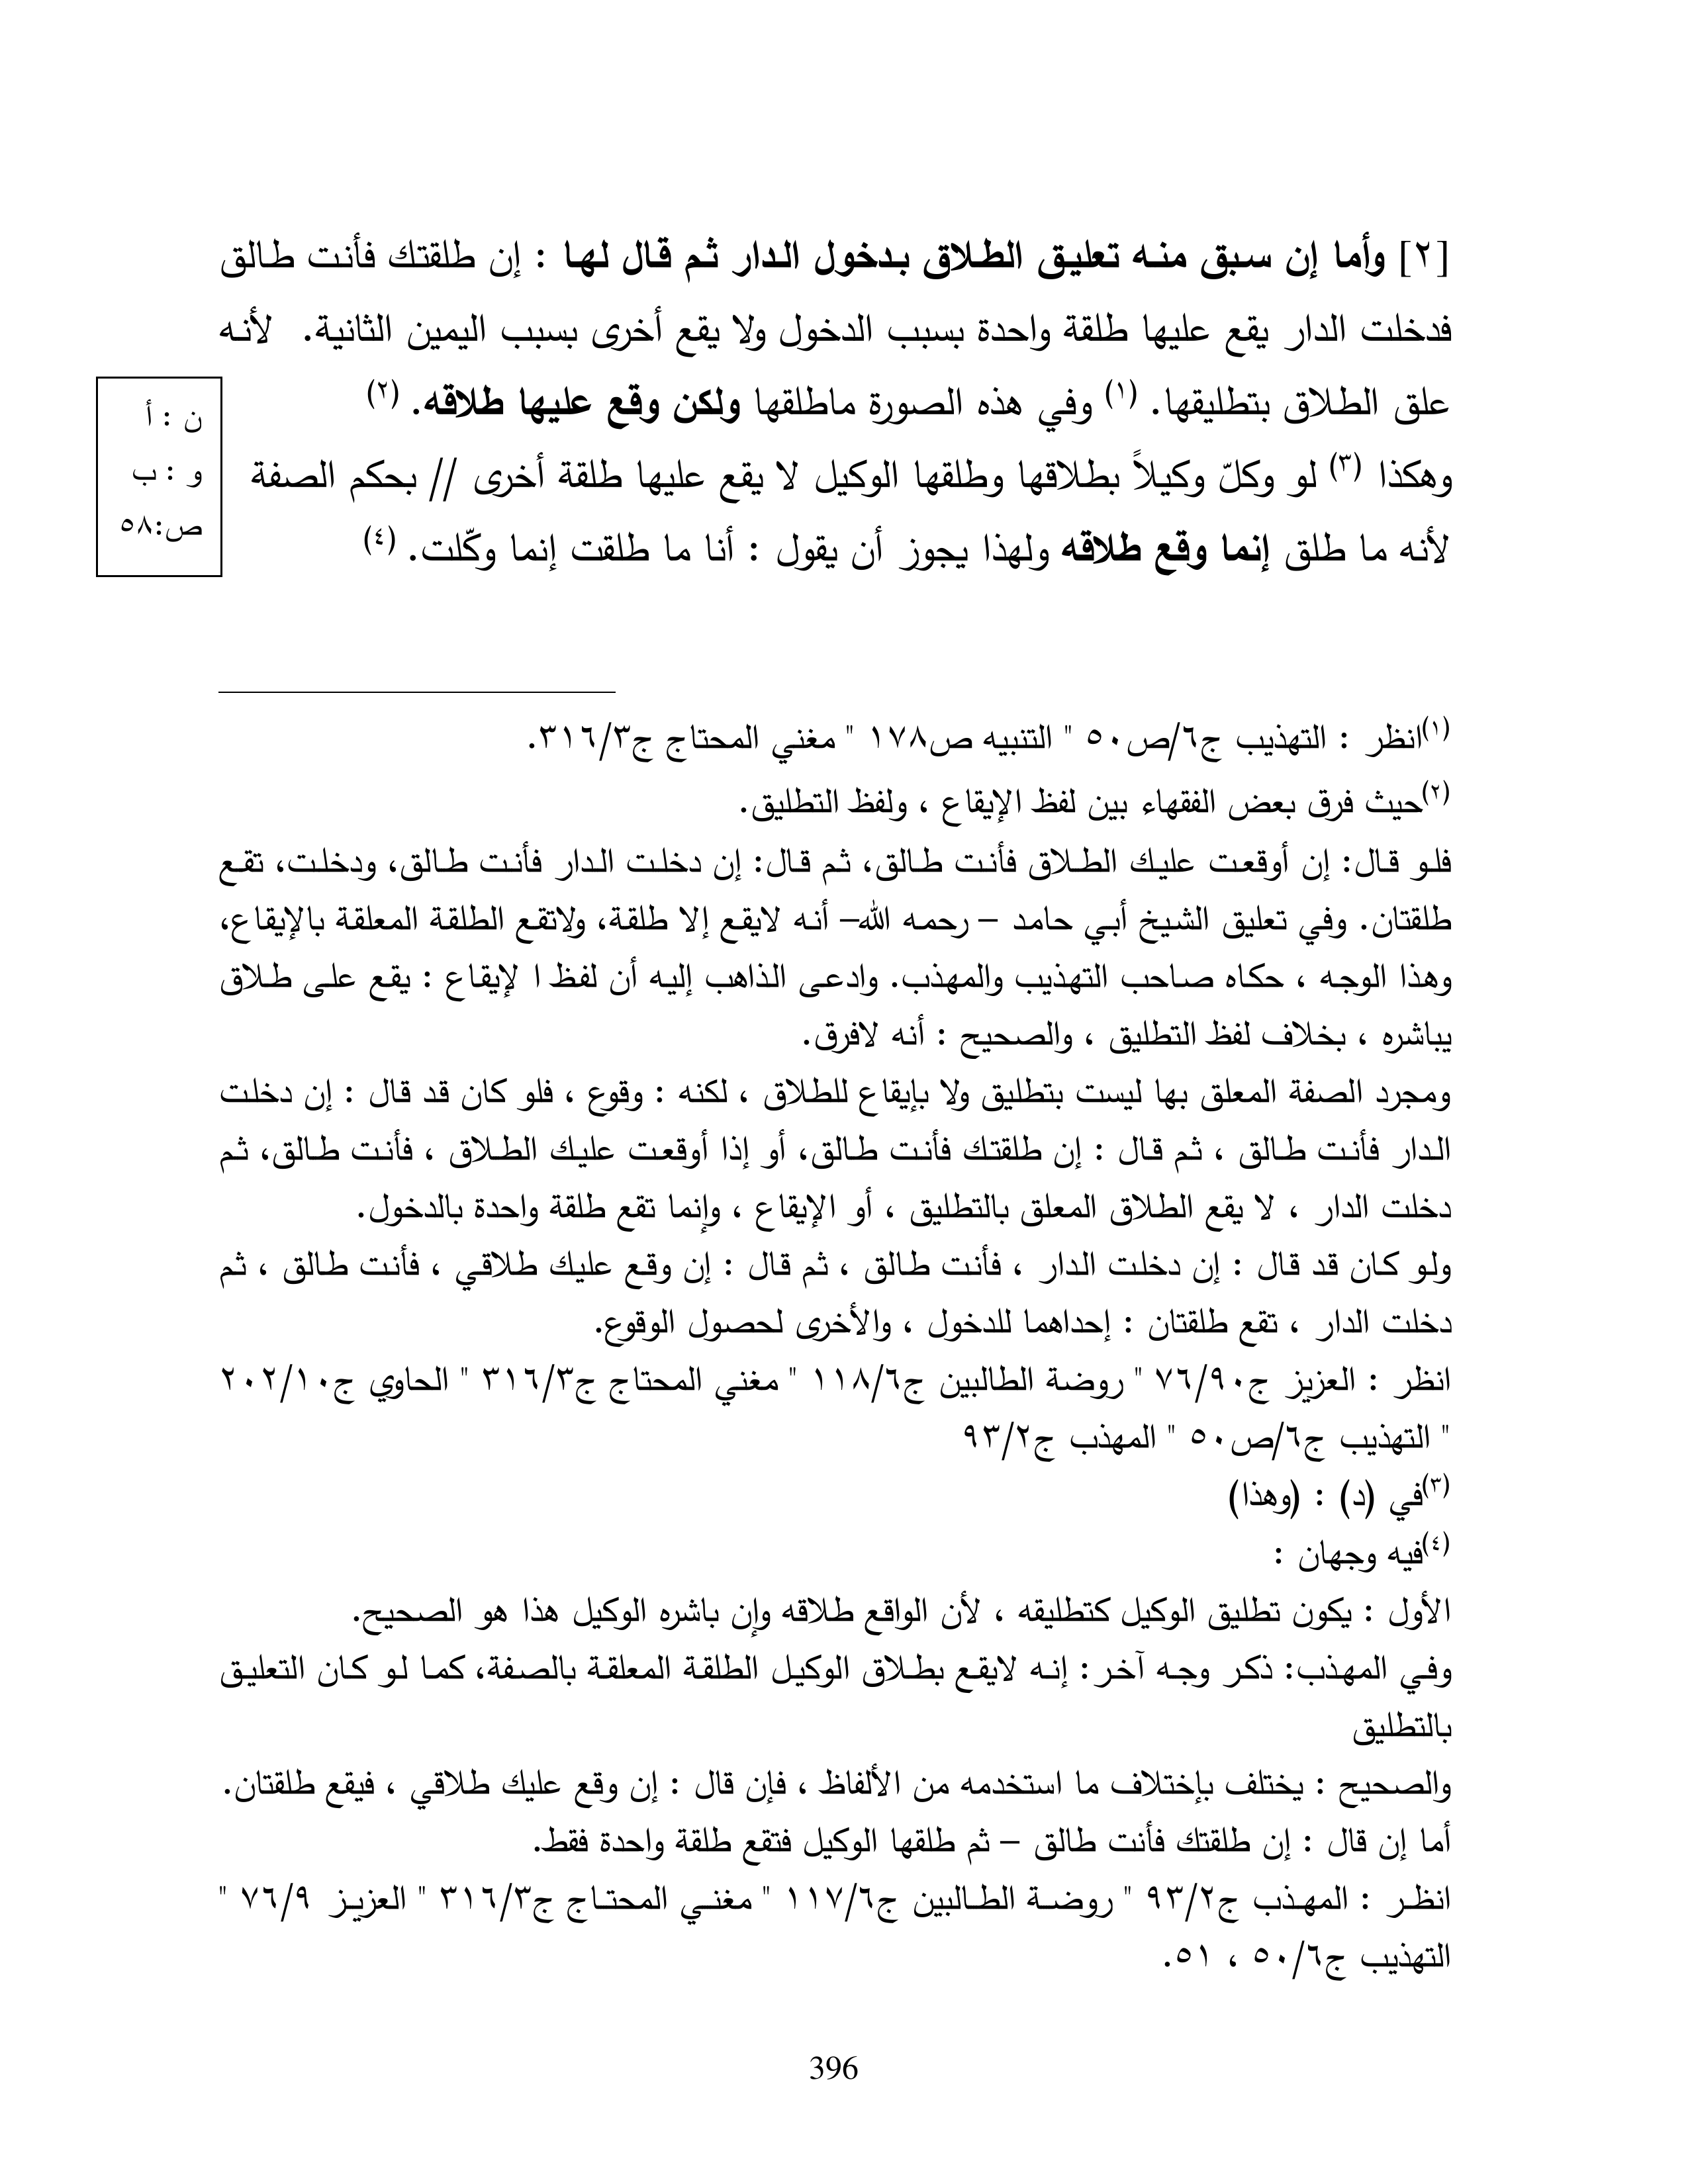 [٢] وأما إن سبق منه تعليق الطلاق بدخول الدار ثم قال لها : إن طلقتك فأنت طالق
فدخلت الدار يقع عليها طلقة واحدة بسبب الدخول ولا يقع أخرى بسبب اليمين الثانية. لأنه
علق الطلاق بتطليقها. (١) وفي هذه الصورة ماطلقها ولكن وقع عليها طلاقه. (٢)
وهكذا (٣) لو وكلّ وكيلاً بطلاقها وطلقها الوكيل لا يقع عليها طلقة أخرى // بحكم الصفة
لأنه ما طلق إنما وقع طلاقه ولهذا يجوز أن يقول : أنا ما طلقت إنما وكّلت. (٤)
ن : أ
و : ب
ص:٥٨
(١)انظر : التهذيب ج٦/ص٥٠ " التنبيه ص١٧٨ " مغني المحتاج ج٣١٦/٣.
(٢)حيث فرق بعض الفقهاء بين لفظ الإيقاع ، ولفظ التطليق.
فلو قال: إن أوقعت عليك الطلاق فأنت طالق، ثم قال: إن دخلت الدار فأنت طالق، ودخلت، تقع
طلقتان. وفي تعليق الشيخ أبي حامد – رحمه الله– أنه لايقع إلا طلقة، ولاتقع الطلقة المعلقة بالإيقاع،
وهذا الوجه ، حكاه صاحب التهذيب والمهذب. وادعى الذاهب إليه أن لفظ ا لإيقاع : يقع على طلاق
يباشره ، بخلاف لفظ التطليق ، والصحيح : أنه لافرق.
ومجرد الصفة المعلق بها ليست بتطليق ولا بإيقاع للطلاق ، لكنه : وقوع ، فلو كان قد قال : إن دخلت
الدار فأنت طالق ، ثم قال : إن طلقتك فأنت طالق، أو إذا أوقعت عليك الطلاق ، فأنت طالق، ثم
دخلت الدار ، لا يقع الطلاق المعلق بالتطليق ، أو الإيقاع ، وإنما تقع طلقة واحدة بالدخول.
ولو كان قد قال : إن دخلت الدار ، فأنت طالق ، ثم قال : إن وقع عليك طلاقي ، فأنت طالق ، ثم
دخلت الدار ، تقع طلقتان : إحداهما للدخول ، والأخرى لحصول الوقوع.
انظر : العزيز ج٧٦/٩٠ " روضة الطالبين ج١١٨/٦ " مغني المحتاج ج٣١٦/٣ " الحاوي ج٢٠٢/١٠
" التهذيب ج٦/ص٥٠ " المهذب ج٩٣/٢
(٣)في (د) : (وهذا)
(٤)فيه وجهان :
الأول : يكون تطليق الوكيل كتطليقه ، لأن الواقع طلاقه وإن باشره الوكيل هذا هو الصحيح.
وفي المهذب: ذكر وجه آخر: إنه لايقع بطلاق الوكيل الطلقة المعلقة بالصفة، كما لو كان التعليق
بالتطليق
والصحيح : يختلف بإختلاف ما استخدمه من الألفاظ ، فإن قال : إن وقع عليك طلاقي ، فيقع طلقتان.
أما إن قال : إن طلقتك فأنت طالق – ثم طلقها الوكيل فتقع طلقة واحدة فقط.
انظر : المهذب ج٩٣/٢ " روضة الطالبين ج١١٧/٦ " مغني المحتاج ج٣١٦/٣ " العزيز ٧٦/٩ "
التهذيب ج٥٠/٦ ، ٥١.
396